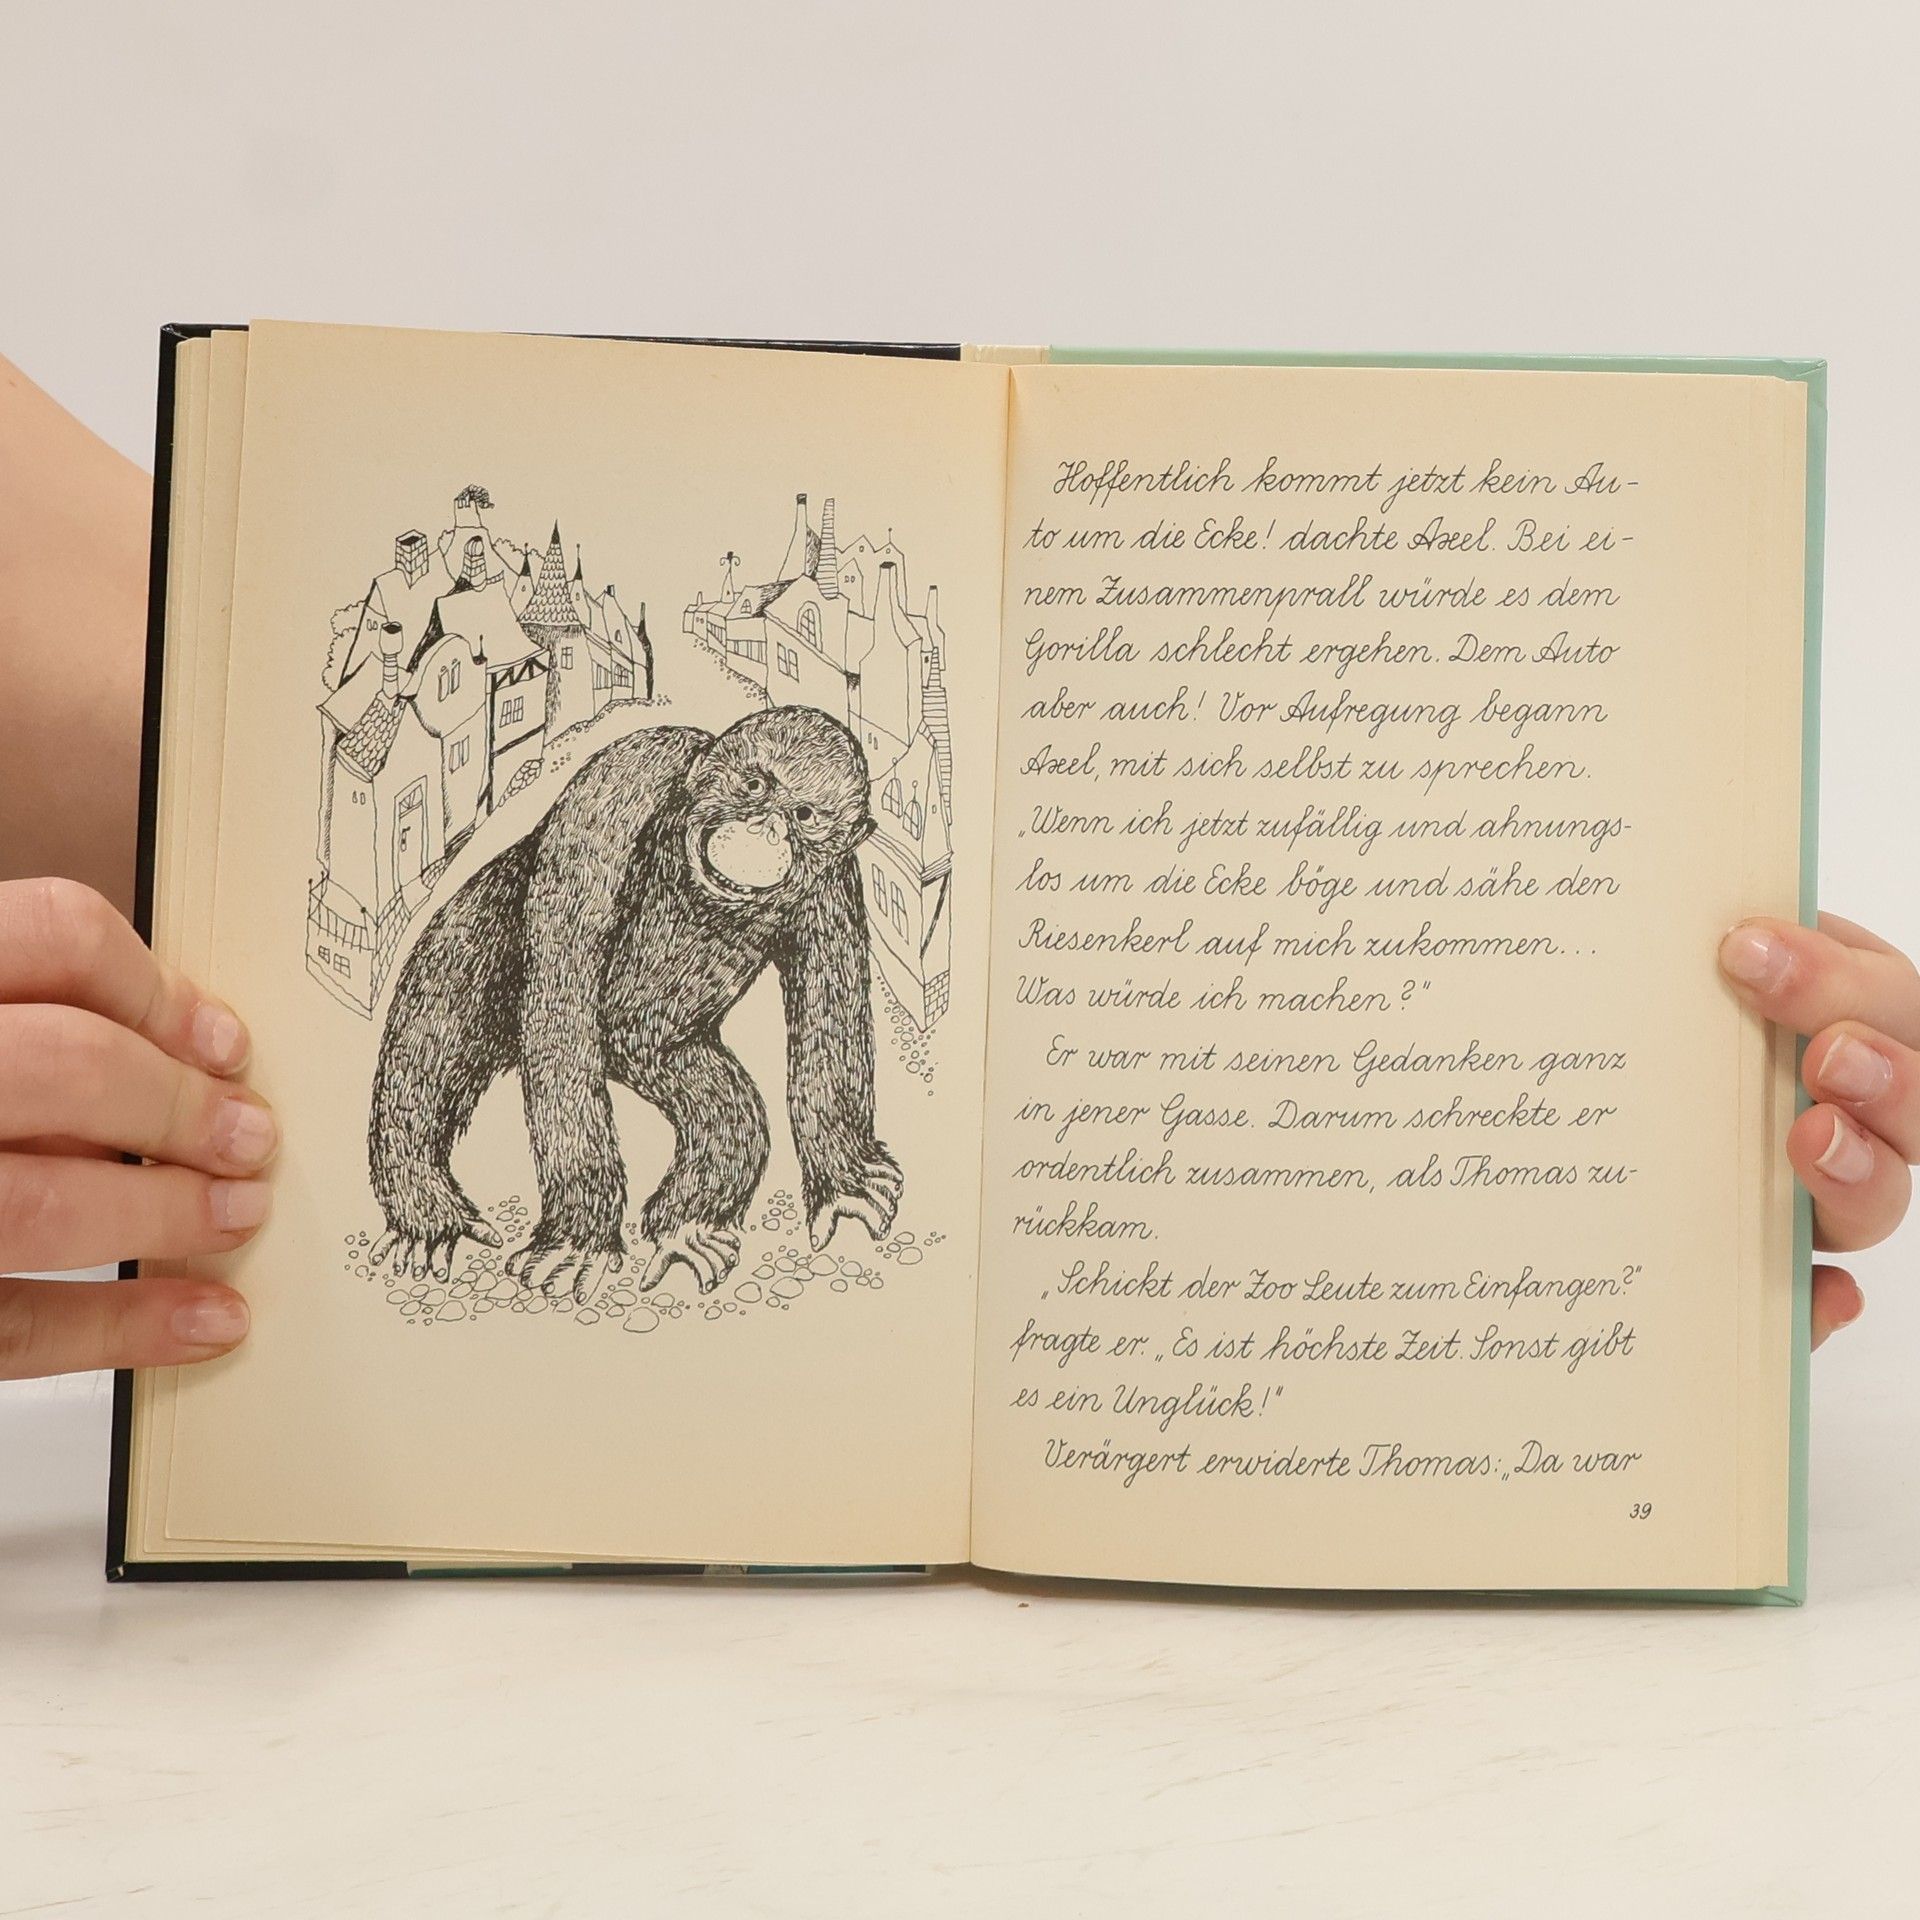 Hoffentlich kommt jetzt kein Au-
to um die Ecke! dachte Axel. Bei ei-
nem Zusammenprall würde es dem
Gorilla schlecht ergehen. Dem Auto
aber auch! Vor Aufregung begann
Axel, mit sich selbst zu sprechen.
„Wenn ich jetzt zufällig und ahnungs-
los um die Ecke böge und sähe den
Riesenkerl auf mich zukommen...
Was würde ich machen?"
Er war mit seinen Gedanken ganz
in jener Gasse. Darum schreckte er
ordentlich zusammen, als Thomas zu-
rückkam.
„Schickt der Zoo Leute zum Einfangen?"
fragte er. „Es ist höchste Zeit. Sonst gibt
es ein Unglück!"
Verärgert erwiderte Thomas: „Da war
39